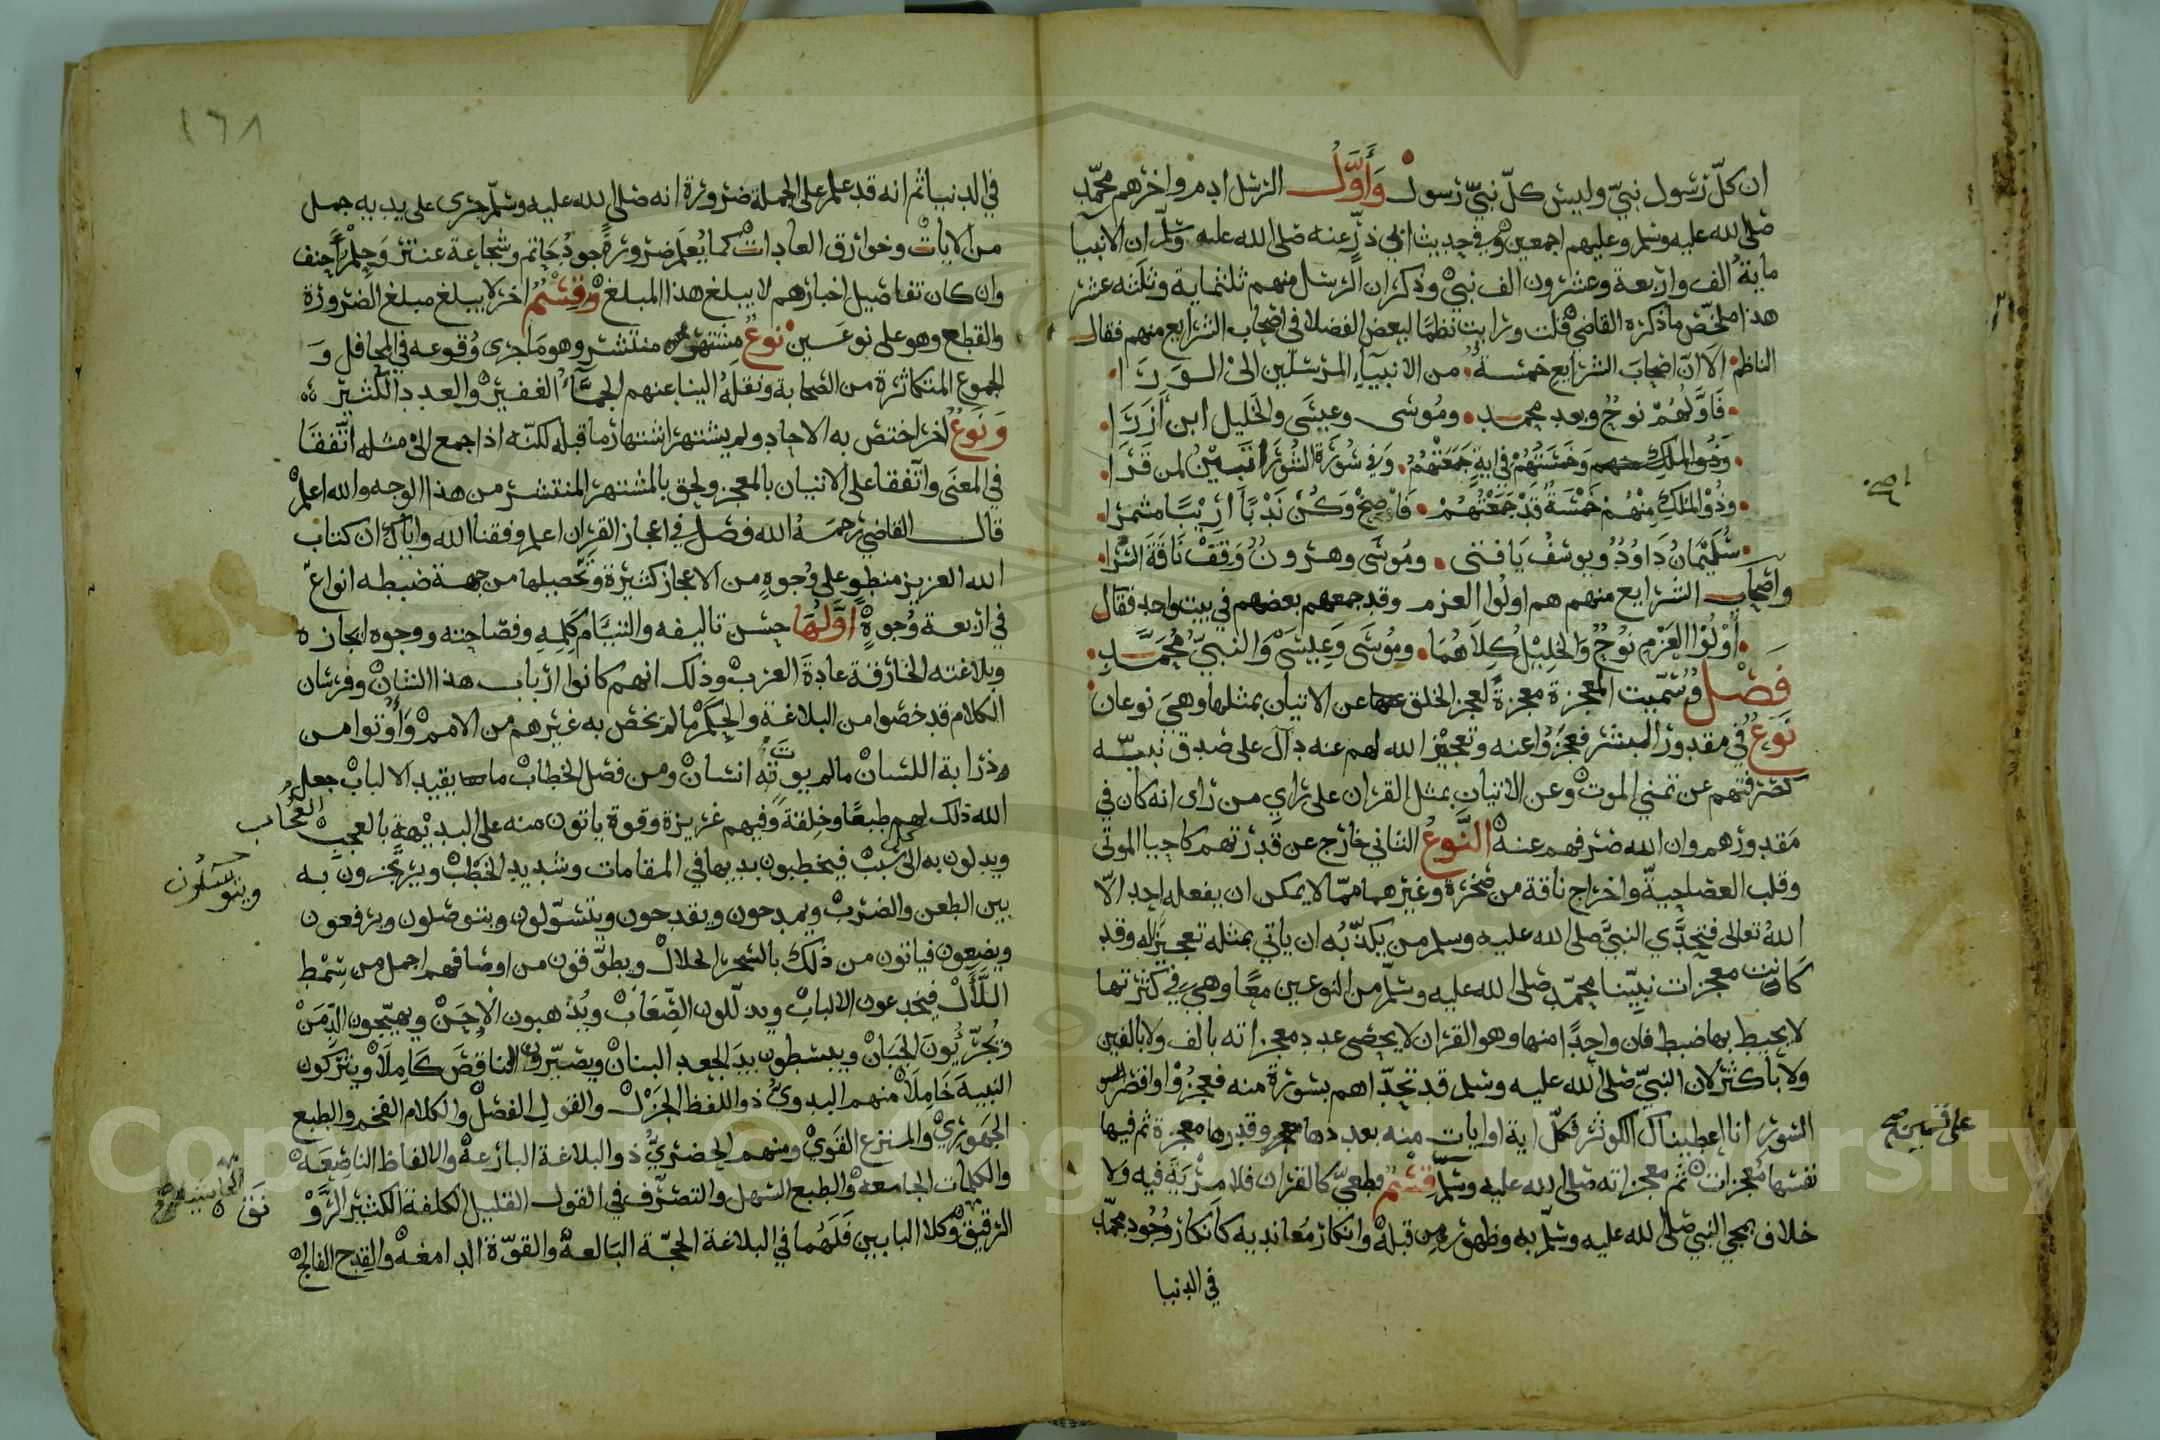 ان كلّ رسول نبيّ وليس كلّ نبيّ رسول وَأَوَّلُ الرسل ادم واخرهم محمّد
صلى الله عليه وسلم وعليهم اجمعين وفي حديث ابي ذرّ عنه صلى الله عليه وسلّم ان الانبيا
ماية الف واربعة وعشرون الف نبيّ وذكر ان الرسل منهم ثلثماية وثلثه عشر
هذا ملخّص ما ذكره القاضي قلت ورايت نظمًا لبعض الفضلا في اصحاب الشرايع منهم فقال
الناظم الا انّ اصحاب الشرايع خمسة من الانبيآء المرسلين الى الورَرَا
فاوّلهم نوح وبعد محمد وموسى وعيسى والخليل ابن أزَرَا
وخمستهم في اية جمعتهم وفي سورة الشورا تبين لمن قرا
وذُو الملك منهم خمسة قد جمعتهم فاصغ وكن ندبًا اريبًا مشمرا
سليمان داود ويوسف يا فتى وموسى وهرون
واصحاب الشرايع منهم هم اولوا العزم وقد جمعهم بعضهم في بيت واحد فقال
أولوا العزم نوح والخليل كلاهما وموسى وعيسى والنبيّ محمّد
فَصْل وسمّيت المعجزة معجزة لعجز الخلق عن الاتيان بمثلها وهي نوعان
نَوعٌ في مقدور البشر فعجزوا عنه وتعجيز الله لهم عنه دالّ على صدق نبيّه
كصرفتهم عن تمني الموت وعن الاتيان بمثل القران على راي من راى انه كان في
مقدورهم وان الله صرفهم عنه النَّوعُ الثاني خارج عن قدرتهم كاحيا الموتى
وقلب العصا حيةً واخراج ناقة من صخرة وغيرهما ممّا لا يمكن ان يفعله احد الّا
الله تعالى فتحدّي النبيّ صلى الله عليه وسلم من يكذّبه ان ياتي بمثله تعجيز له وقد
كانت معجزات نبيّنا محمّد صلى الله عليه وسلّم من النوعين معًا وهي في كثرتها
لا يحيط بها ضبط فان واحدًا منها وهو القران لا يحصى عدد معجزاته بالف ولا بالفين
ولا باكثر لان النبيّ صلى الله عليه وسلم قد تحدّاهم بسورة منه فعجزوا واقصر
السور انا اعطيناك الكوثر فكلّ اية او ايات منه بعددها وقدرها معجزة ثم فيها
نفسها معجزات ثم معجزاته صلى الله عليه وسلّم قِسْمٌ قطعيّ كالقران فلا مرية فيه ولا
خلاف بمجي النبي صلى الله عليه وسلّم به وظهوره من قبله وانكار معانديه كانكار وجود محمّد
في الدنيا
على قسمين صح
١٦٨
في الدنيا ثم انه قد علم على الجملة ضرورة انه صلى الله عليه وسلّم جرى على يديه جمل
من الايات وخوارق العادات كما يُعلم ضرورةً جود حاتم وشجاعة عنتر وحلم أحنف
وان كان تفاصيل اخبارهم لا يبلغ هذا المبلغ وَقِسْمٌ اخر لا يبلغ مبلغ الضرورة
والقطع وهو على نوعَين نوعٌ مشتهر منتشر وهو ما جرى وقوعه في المحافل وَ
الجموع المتكاثرة من الصحابة ونقله الينا عنهم الجمّآء الغفير والعدد الكثير
وَنَوعٌ اخر اختص به الاحاد ولم يشتهر اشتهار ما قبله لكنّه اذا جمع الى مثله اتّفقا
في المعنى واتّفقا على الاتيان بالمعجز ولحق بالمشتهر المنتشر من هذا الوجه والله اعلم
قال القاضي رحمه الله فصل في اعجاز القران اعلم وفقنا الله واياك ان كتاب
الله العزيز منطو على وجوهٍ من الاعجاز كثيرة وتحصيلها من جهة ضبطه انواع
في اربعة وجوه اوَّلُهَا حسن تاليفه والتيام كلمه وفصاحته ووجوه ايجازه
وبلاغته الخارقة عادة العرب وذلك انهم كانوا ارباب هذا الشان وفرسان
الكلام قد خصّوا من البلاغة والحكم ما لم يخص به غيرهم من الامم وَأوتوا من
ذرابة اللسان ما لم يوته انسان ومن فصل الخطاب ما يقيد الالباب جعل
الله ذلك لهم طبعًا وخلقةً وفيهم غريزة وقوة ياتون منه على البديهة بالعجب
ويدلون به الى كلّ سبب فيخطبون بديها في المقامات وشديد الخطب ويرتجزون به
بين الطعن والضرب ويمدحون ويقدحون ويتسوّلون ويتوصّلون ويرفعون
ويضعون فياتون من ذلك بالسحر الحلال ويطوّقون من اوصافهم اجمل من سمط
اللَّأَل فيخدعون الالباب ويذلّلون الصّعاب ويُذهبون الإحن ويهيّجون الدّمن
ويجرّئون الجبان ويبسطون يد الجعد البنان ويصيّرون الناقص كاملًا ويتركون
النبيه خاملًا منهم البدويّ ذو اللفظ الجزل والقول الفصل والكلام الفخم والطبع
الجهوريّ والمنزع القويّ ومنهم الحضريّ ذو البلاغة البارعة والالفاظ الناصعة
والكلمات الجامعة والطبع السهل والتصرّف في القول القليل الكلفة الكثير الرَّوْ
نَق
الرقيق وكلا البابين فلهما في البلاغة الحجّة البالغة والقوّة الدامغة والقدح الفالج
العُجَاب
ويتوسّلون
الحاشيه